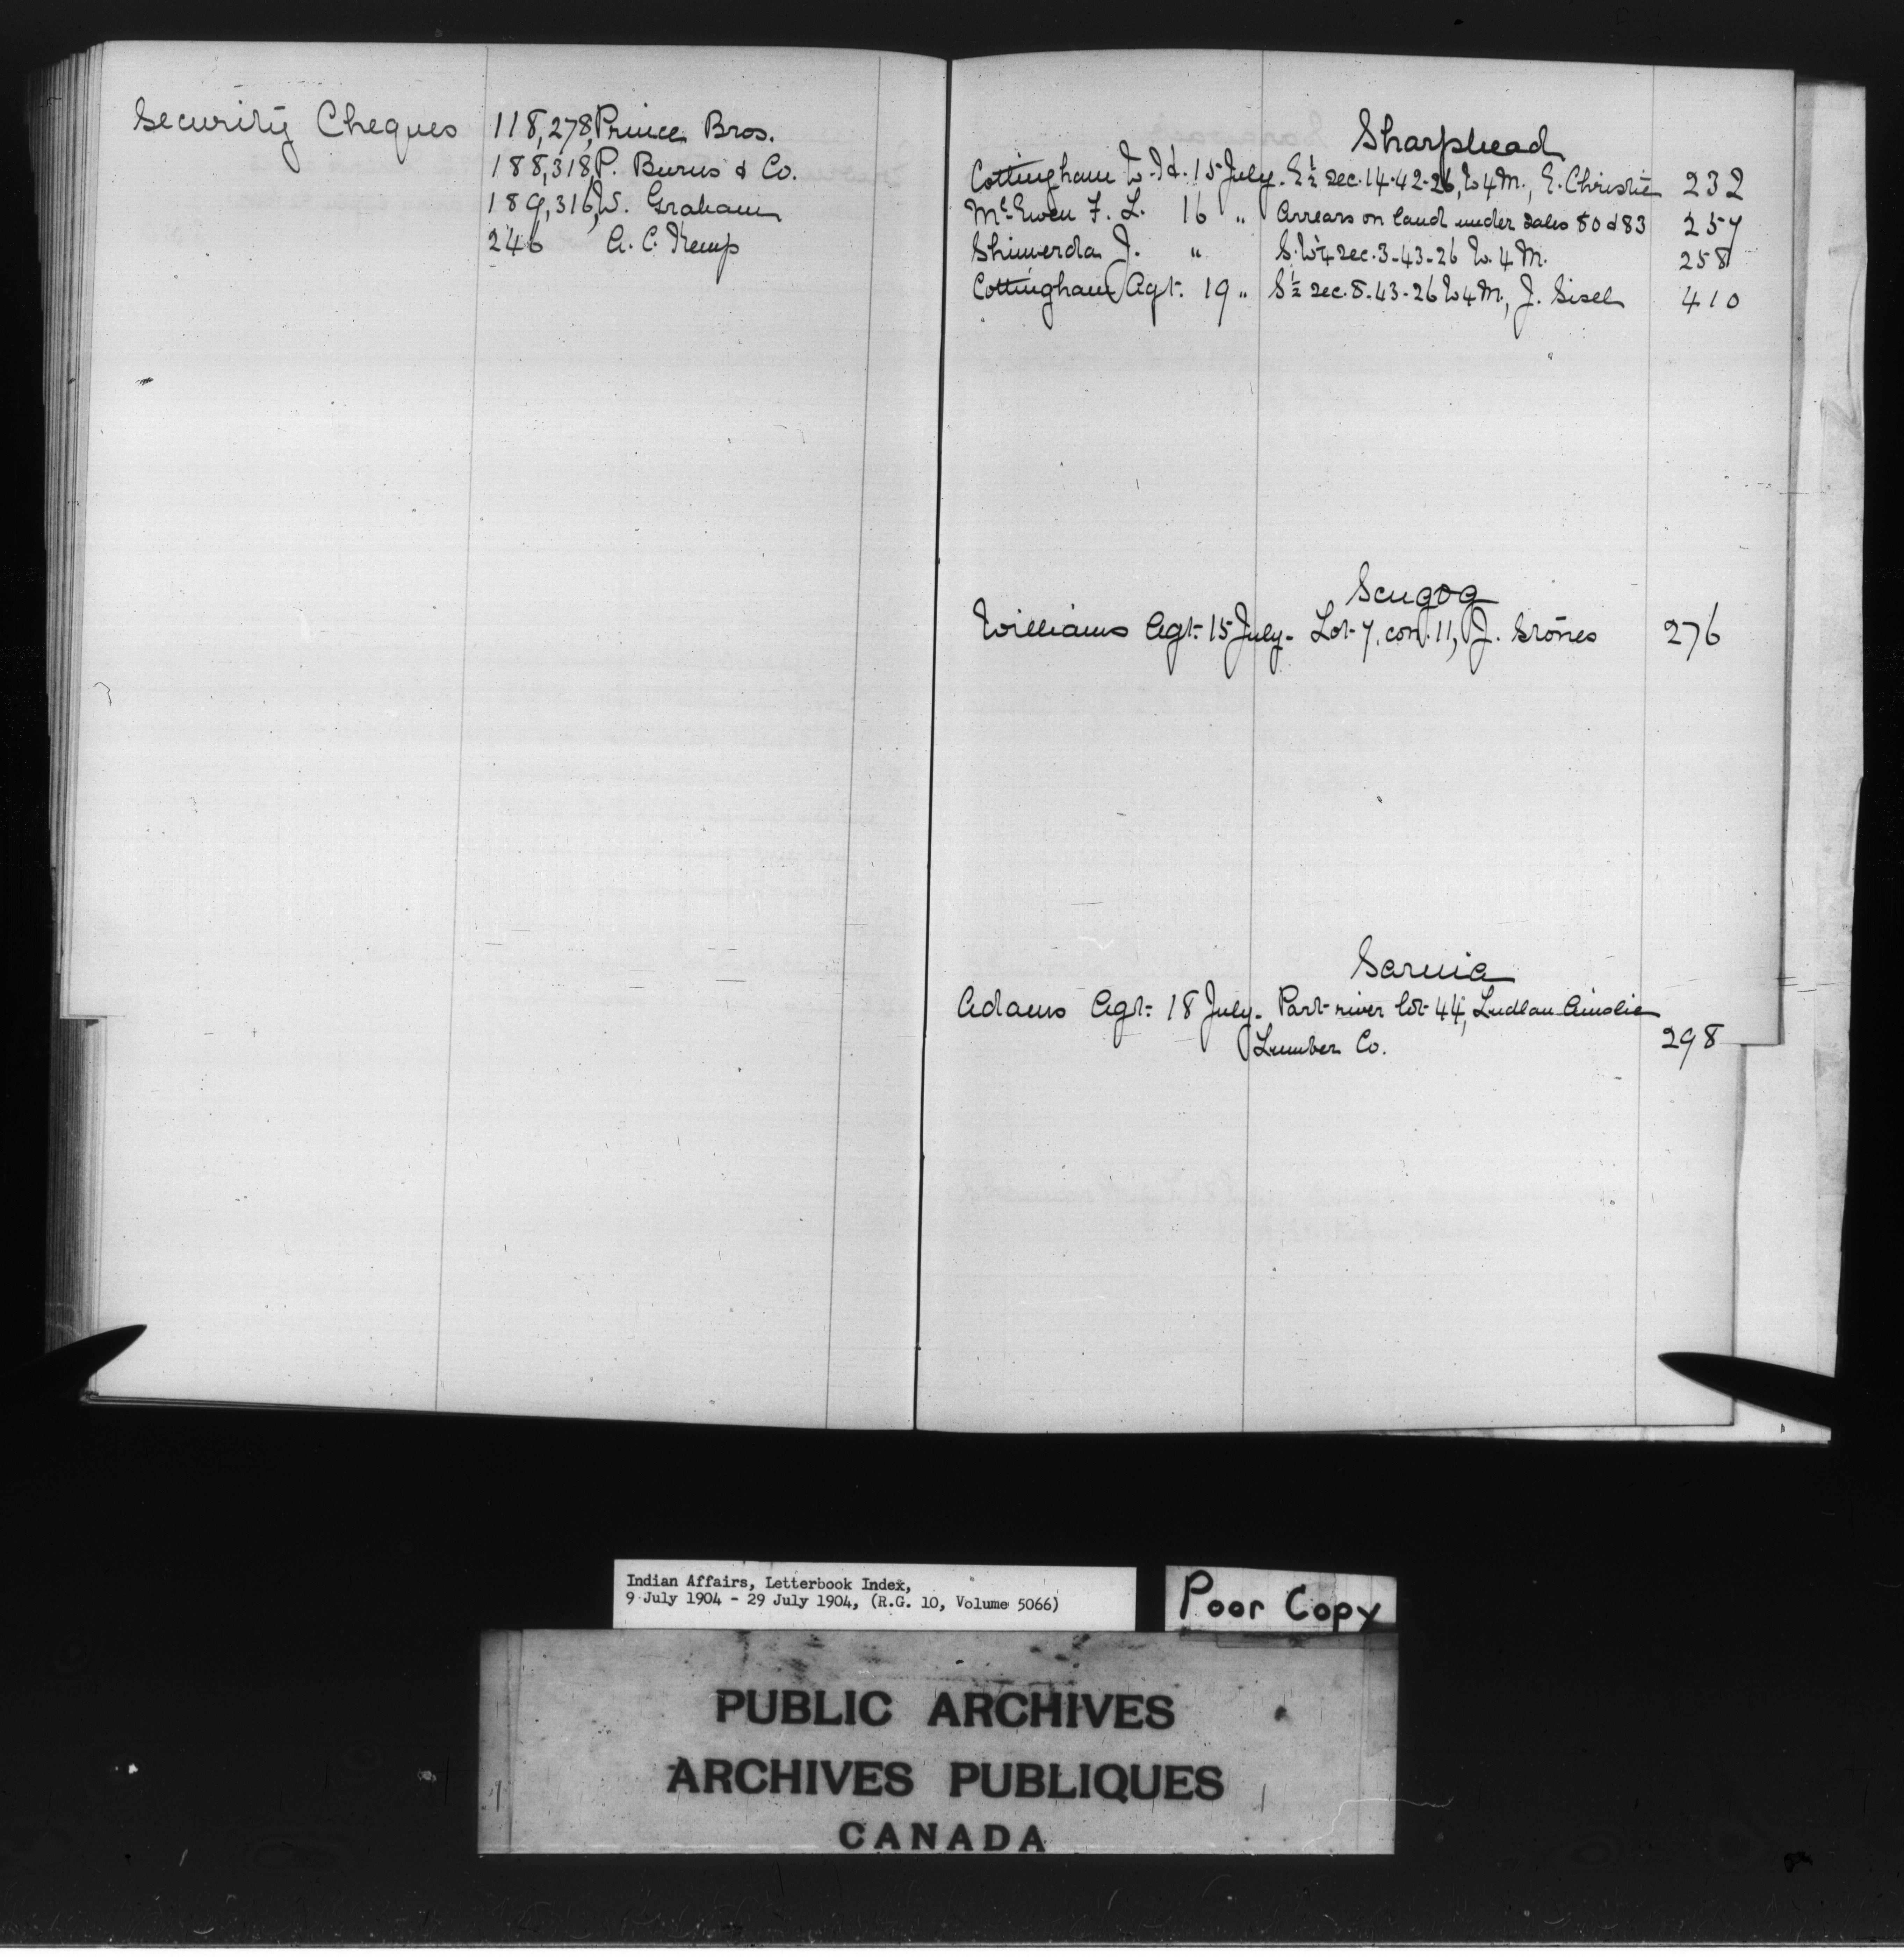 Security Cheques 118,278, Prince Bros.
188,318, P. Burns & Co.
189,316, W. Graham
246 A. C. Kemp
Sharphead
Cottingham W. H. 15 July. E½ sec. 14-42-26, W4M., E. Christie 232
McEwen F. L. 16 " Arrears on land under sales 80 & 83 257
Shimerda J. " S.W¼ sec. 3-43-26 W. 4 M. 258
Cottingham Agt. 19 " S½ sec. 8-43-26 W4M., J. Sisel 410
Scugog
Williams Agt. 15 July. Lot 7, con. 11, J. Stones 276
Sarnia
Adams Agt. 18 July. Part river lot 44, Ludlau Ainslie
Lumber Co. 298
Indian Affairs, Letterbook Index,
9 July 1904 - 29 July 1904, (R.G. 10, Volume 5066)
Poor Copy
PUBLIC ARCHIVES
ARCHIVES PUBLIQUES
CANADA